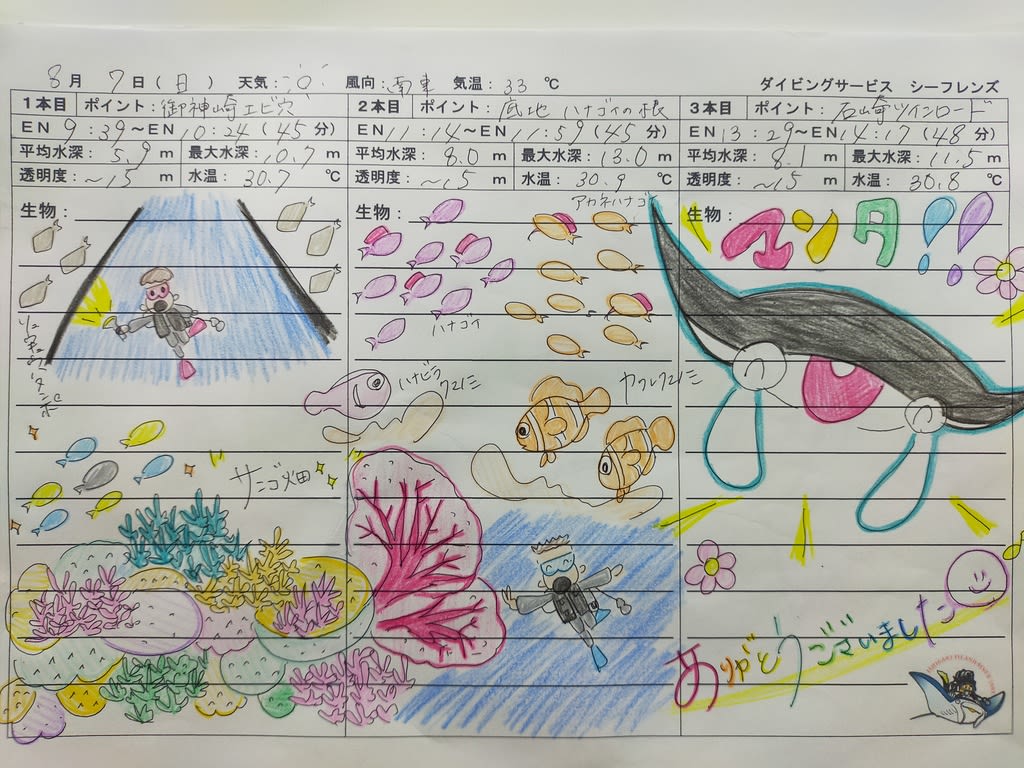 8月 7日(日) 天気: 風向:南東 気温:33 ℃
ダイビングサービス シーフレンズ
1本目 ポイント:御神崎エビ穴
EN 9:39~EN 10:24(45分)
平均水深: 5.9 m 最大水深: 10.7 m
透明度: ~15 m 水温: 30.7 ℃
生物:
サンゴ畑
2本目 ポイント:底地 ハナゴイの根
EN 11:14~EN 11:59(45分)
平均水深: 8.0 m 最大水深: 13.0 m
透明度: ~15 m 水温: 30.9 ℃
生物:
アカネハナゴイ
ハナゴイ
ハナビラクマノミ
カクレクマノミ
3本目 ポイント:石崎ツインロード
EN 13:29~EN 14:17(48分)
平均水深: 8.1 m 最大水深: 11.5 m
透明度: ~15 m 水温: 30.8 ℃
生物:
マンタ!!
ありがとうございました